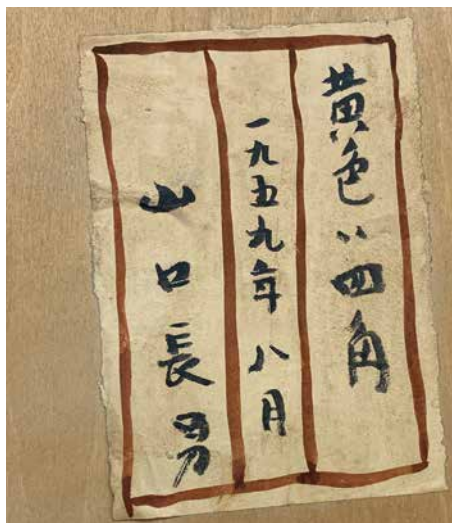 黄色い四角
一九五九年八月
山口長男